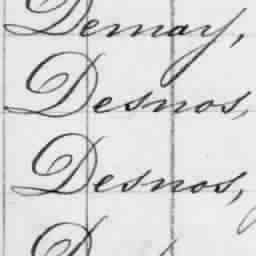 Demay,
Desnos,
Desnos,